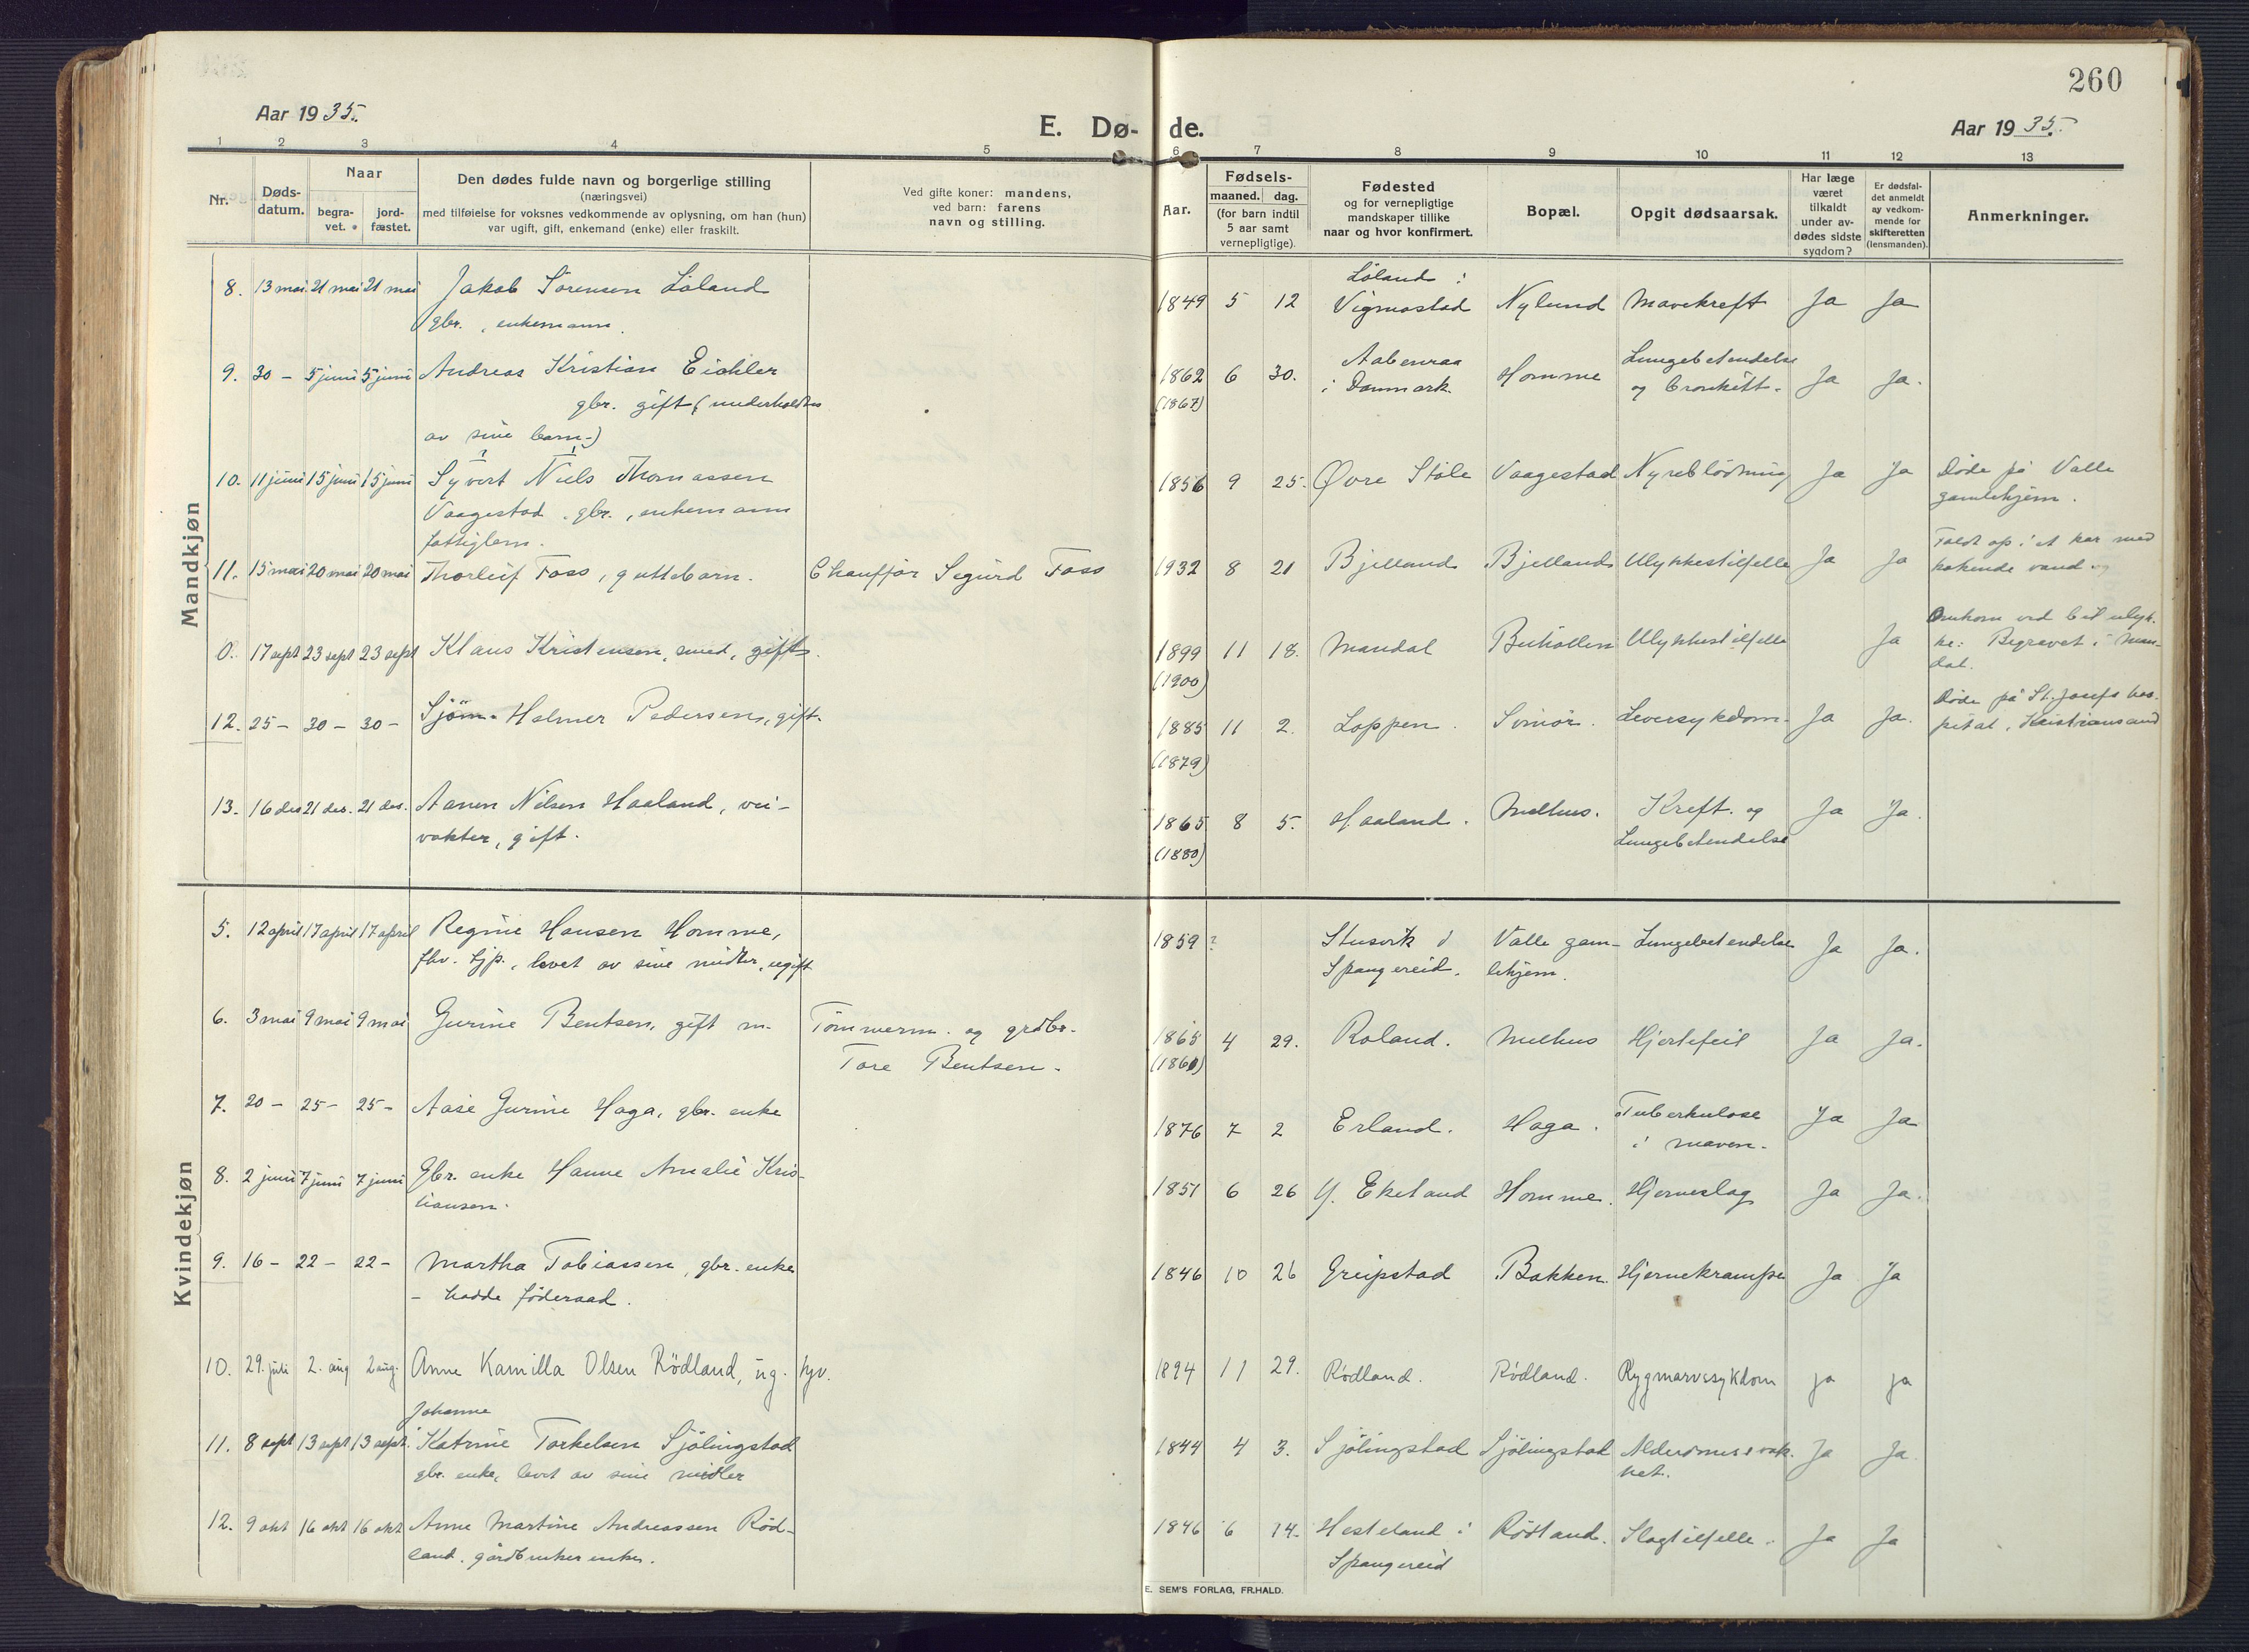 260
Aar 1935.
E. Dø-de.
Aar 1935.
1 2 3 4 5 6 7 8 9 10 11 12 13
Nr.
Døds-
datum.
Naar
begra-
vet.
jord-
fæstet.
Den dødes fulde navn og borgerlige stilling
(næringsvei)
med tilføielse for voksnes vedkommende av oplysning, om han (hun)
var ugift, gift, enkemand (enke) eller fraskilt.
Ved gifte koner: mandens,
ved barn: farens
navn og stilling.
Aar.
Fødsels-
maaned. dag.
(for barn indtil
5 aar samt
vernepligtige).
Fødested
og for vernepligtige
mandskaper tillike
naar og hvor konfirmert.
Bopæl.
Opgit dødsaarsak.
Har læge
været
tilkaldt
under av-
dødes sidste
sygdom?
Er dødsfal-
det anmeldt
av vedkom-
mende for
skifteretten
(lensmanden).
Anmerkninger.
Mandkjøn
8. 13 mai 21 mai 21 mai Jakob Sørensen Løland
gbr., enkemann.
1849 5 12 Løland i
Vigmostad Nylund Mavekreft Ja Ja
9. 30 – 5 juni 5 juni Andreas Kristian Eichler
gbr. gift (underholdtes
av sine barn.)
1862 6 30. Aabenraa
(1867) i Danmark. Homme Lungebetendelse
og bronkitt. Ja Ja.
10. 11 juni 15 juni 15 juni Syvert Niels Thomassen
Vaagestad. gbr., enkemann
fattiglem.
1856 9 25. Øvre Støle Vaagestad Nyreblödning Ja Ja Döde på Valle
gamlehjem.
11. 15 mai 20 mai 20 mai Thorleif Foss, guttebarn. Chauffør Sigurd Foss
1932 8 21 Bjelland Bjelland Ulykkestilfelle Ja Ja Faldt op i et kar med
kokende vand.
0. 17 sept 23 sept 23 sept Klaus Kristensen, smed, gift.
1899 11 18. Mandal Ulykkestilfelle Ja Omkom ved bilulyk-
(1900) ke: Begravet i Man-
dal.
12. 25 – 30 – 30 – Sjöm. Holmer Pedersen, gift.
1885 11 2. Loppen. Svinör. Leversykdom. Ja Ja. Döde på St. Josefs hos-
(1879) pital, Kristiansand
13. 16 des 21 des. 21 des. Aanen Nilsen Haaland, vei-
vokter, gift.
1865 8 5. Haaland. Melhus. Kreft. og
(1880) Lungebetendelse Ja Ja.
Kvindekjøn
5. 12 april 17 april 17 april Regine Hansen Homme,
fhv. tjp., levet av sine midler, ugift
1859? Stusvik i
Spangereid. Valle gam-
lehjem. Lungebetendelse Ja Ja.
6. 3 mai 9 mai 9 mai Gurine Bentsen, gift m. Tömmerm. og grdbr.
Tore Bentsen.
1865 4 29. Roland. Melhus Hjertefeil Ja Ja.
7. 20 – 25 – 25 – Aase Gurine Haga, gbr. enke
1876 7 2 Erland. Haga. Tuberkulose
i maven. Ja Ja
8. 2 juni 7 juni 7 juni Gbr. enke Hanne Amalie Kris-
tiansen.
1851 6 26 Y. Ekeland Homme. Hjerneslag Ja Ja.
9. 16 – 22 – 22 – Martha Tobiassen, gbr. enke
– hadde föderaad.
1846 10 26 Greipstad Bakken. Hjernekrampe Ja Ja
10. 29. juli 2. aug 2 aug. Anne Kamilla Olsen Rödland, ug. hjv.
1894 11 29. Rödland. Rödland. Rygmarvssykdom ja ja
Johanne
11. 8 sept 13 sept 13 sept. Katrine Torkelsen Sjölingstad
gbr. enke, levet av sine midler
1844 4 3. Sjölingstad Sjölingstad Alderdomssvak-
het. Ja Ja
12. 9 okt 16 okt 16 okt Anne Martine Andreassen Röd-
land. gårdbrukerenke.
1846 6 14. Hesteland i
Spangereid Rödland. Slagtilfelle. Ja Ja
E. SEM'S FORLAG, FR.HALD.